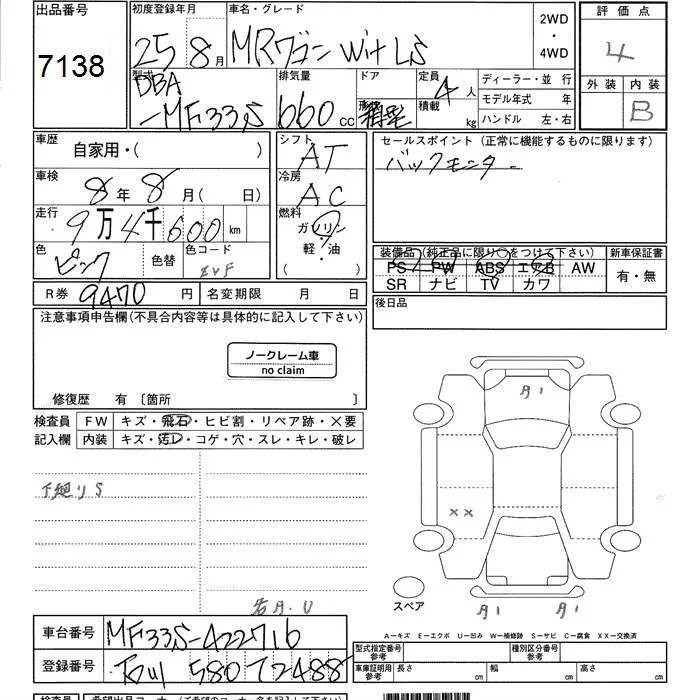 出品番号
7138
初度登録年月
25 8月
車名・グレード
MRワゴン Wit LS
2WD
・
4WD
評価点
4
外装 内装
B
型式
DBA
-MF33S
排気量
660cc
ドア
形状
定員 4人
積載 kg
ディーラー・並行
モデル年式 年
ハンドル 左・右
車歴
自家用・( )
シフト
AT
セールスポイント (正常に機能するものに限ります)
バックモニター
車検
8年 8月( 日)
冷房
AC
走行
9万4千600km
燃料
ガソリン
軽・油
( )
色
ピンク
色替
色コード
ZVF
装備品(純正品に限り○をつけて下さい)
PS PW ABS エアB AW
SR ナビ TV カワ
新車保証書
有・無
R券 9470円 名変期限 月 日
後日品
注意事項申告欄(不具合内容等は具体的に記入して下さい)
ノークレーム車
no claim
修復歴 有〔箇所 〕
検査員
記入欄
FW キズ・飛石・ヒビ割・リペア跡・×要
内装 キズ・汚レ・コゲ・穴・スレ・キレ・破レ
下廻りS
××
スペア
A-キズ E-エクボ U-凹み W-補修跡 S-サビ C-腐食 XX-交換済
車台番号 MF33S-422716
登録番号 石川 580 て 2488
型式指定番号
参考
種別区分番号
参考
車庫証明用
参考
長さ cm 幅 cm 高さ cm